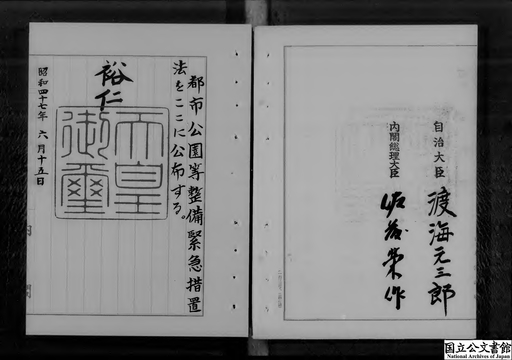 自治大臣 渡海元三郎
内閣総理大臣 佐藤榮作
都市公園等整備緊急措置
法をここに公布する。
裕仁
天皇御璽
昭和四十七年六月十五日
内閣
国立公文書館
National Archives of Japan